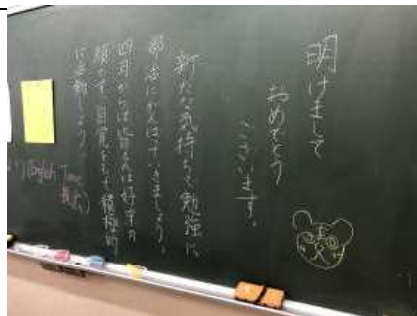 明けまして
おめでとう
ございます。
新たな気持ちで勉強に
部活にがんばっていきましょう。
四月からは皆さんは好中の
顔です。自覚をもって積極的
に活動しよう
English Time